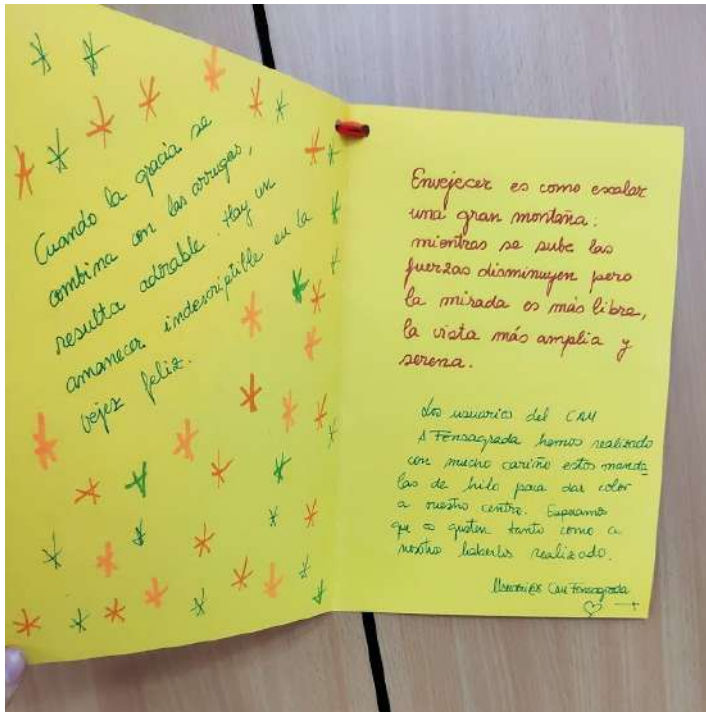 Cuando la gracia se
combina con las arrugas,
resulta adorable. Hay un
amanecer indescriptible en la
vejez feliz.
Envejecer es como escalar
una gran montaña:
mientras se sube las
fuerzas disminuyen pero
la mirada es más libre,
la vista más amplia y
serena.
Los usuarios del CAM
A Fonsagrada hemos realizado
con mucho cariño estos manda
las de hilo para dar color
a nuestro centro. Esperamos
que os gusten tanto como a
nosotro haberlos realizado.
Usuari@s CAM Fonsagrada